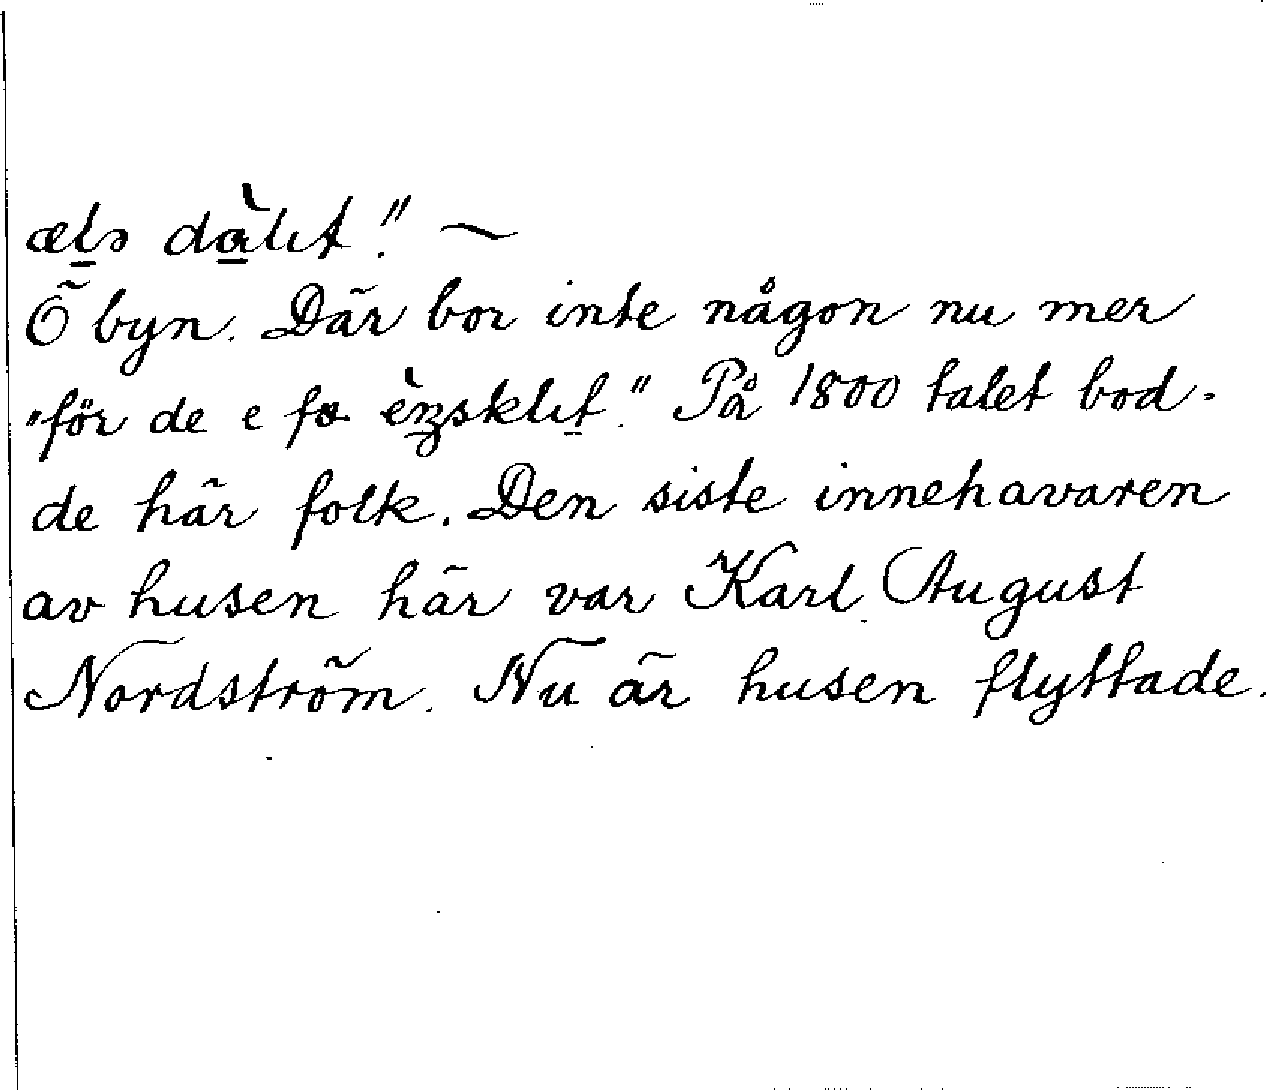 æls dàlıt." ~
Ö byn. Där bor inte någon nu mer
"för de e fɷ ènsklıt." På 1800 talet bod-
de här folk. Den siste innehavaren
av husen här var Karl August
Nordström. Nu är husen flyttade.